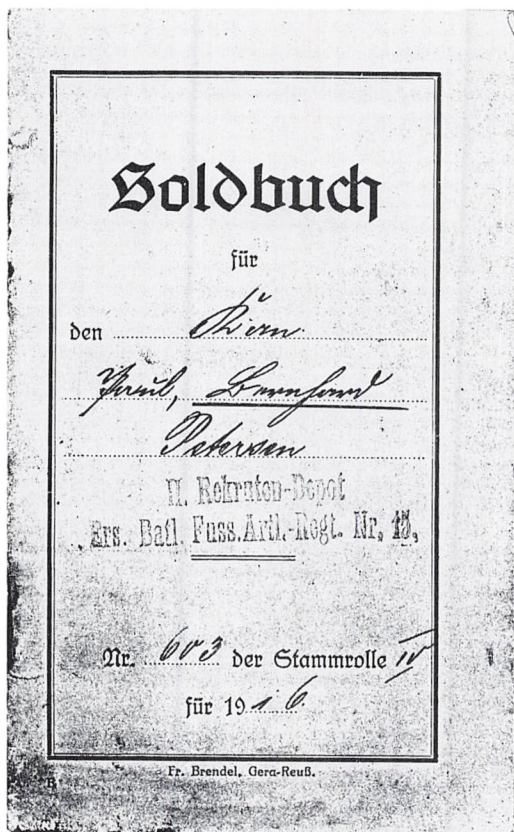 Soldbuch
für
den Kan.
Paul, Bernhard
Petersen
II. Rekruten-Depot
Ers. Batl. Fuss.Artl.-Regt. Nr.
Nr. 603 der Stammrolle IV
für 1916.
Fr. Brendel, Gera-Reuß.